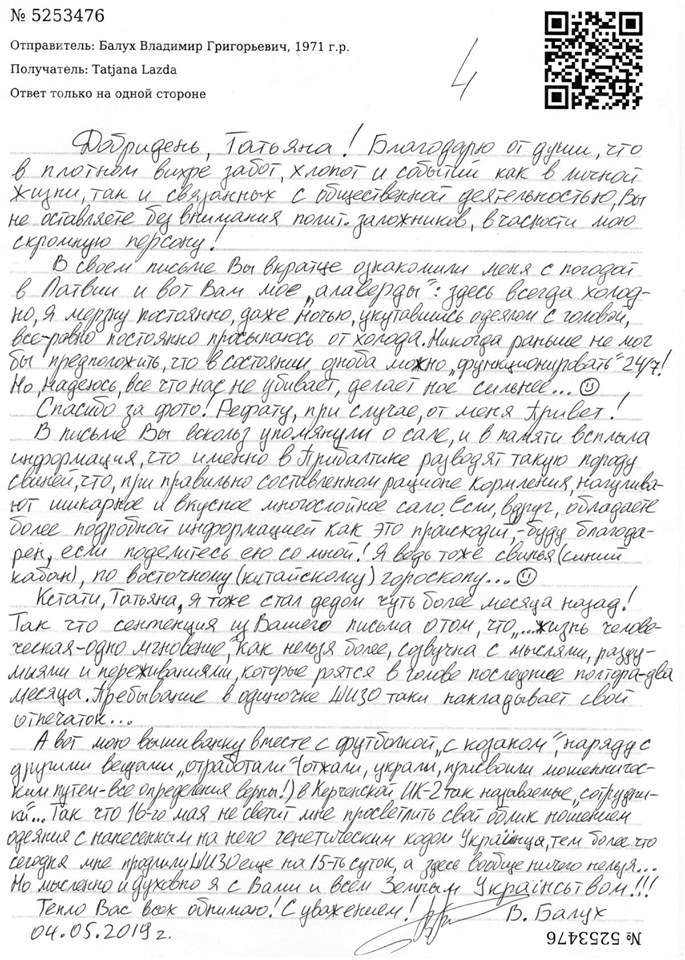 № 5253476
Отправитель: Балух Владимир Григорьевич, 1971 г.р.
Получатель: Tatjana Lazda
Ответ только на одной стороне
4
Добридень, Татьяна! Благодарю от души, что
в плотном вихре забот, хлопот и событий как в личной
жизни, так и связанных с общественной деятельностью, Вы
не оставляете без внимания полит. заложников, в часности мою
скромную персону!
В своем письме Вы вкратце ознакомили меня с погодой
в Латвии и вот Вам мое „алаверды": здесь всегда холод-
но, я мерзну постоянно, даже ночью, укутавшись одеялом с головой,
все-равно постоянно просыпаюсь от холода. Никогда раньше не мог
бы предположить, что в состоянии озноба можно „функционировать" 24/7!
Но, надеюсь, все что нас не убивает, делает нас сильнее... ☺
Спасибо за фото! Рефату, при случае, от меня Привет!
В письме Вы вскольз упомянули о сале, и в памяти всплыла
информация, что именно в Прибалтике разводят такую породу
свиней, что, при правильно составленном рационе кормления, нагулива-
ют шикарное и вкусное многослойное сало. Если, вдруг, обладаете
более подробной информацией как это происходит,- буду благода-
рен, если поделитесь ею со мной! Я ведь тоже свинья (синий
кабан), по восточному (китайскому) гороскопу... ☺
Кстати, Татьяна, я тоже стал дедом чуть более месяца назад!
Так что сентенция из Вашего письма о том, что „...жизнь челове-
ческая-одно мгновение", как нельзя более, созвучна с мыслями, разду-
миями и переживаниями, которые роятся в голове последнее полтора-два
месяца. Пребывание в одиночке ШИЗО таки накладывает свой
отпечаток...
А вот мою вышиванку вместе с футболкой „с козаком", наряду с
другими вещами „отработали" (отжали, украли, присвоили мошенничес-
ким путем-все определения верны!) в Керченской ИК-2 так называемые „сотрудни-
ки"... Так что 16-го мая не светит мне просветить свой облик ношением
одеяния с нанесенным на него генетическим кодом Українця, тем более что
сегодня мне продлили ШИЗО еще на 15-ть суток, а здесь вообще ничего нельзя...
Но мысленно и духовно я с Вами и всем Земным Українством!!!
Тепло Вас всех обнимаю! С уважением! В. Балух
04.05.2019 г.
№ 5253476